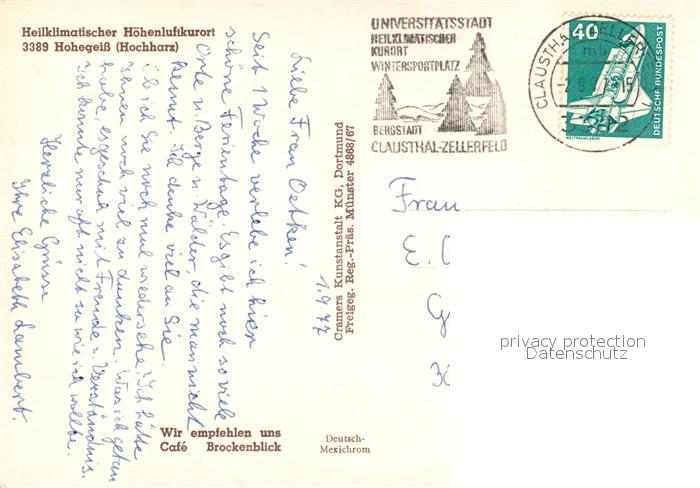 Heilklimatischer Höhenluftkurort
3389 Hohegeiß (Hochharz)
Liebe Frau Oetken!
Seit 1 Woche verlebe ich hier
schöne Ferientage. Es gibt noch so viele
Orte u. Berge u. Wälder, die man nicht
kennt. Ich denke viel an Sie.
ob ich Sie noch mal wiedersehe? Ich hätte
Ihnen noch viel zu danken. Was ich getan
habe, ergeschah mit Freude u. Verständnis.
Ich konnte nur oft nicht so wie ich wollte.
Herzliche Grüsse
Ihre Elisabeth Lambert
1.9.77
Wir empfehlen uns
Café Brockenblick
Deutsch-
Mexichrom
Cramers Kunstanstalt KG, Dortmund
Freigeg. Reg.-Präs. Münster 4868/67
UNIVERSITÄTSSTADT
HEILKLIMATISCHER
KURORT
WINTERSPORTPLATZ
BERGSTADT
CLAUSTHAL-ZELLERFELD
CLAUSTHAL-ZELLERF
mb
-2.9.
3392
40
DEUTSCHE BUNDESPOST
WELTRAUMLABOR
Frau
E.
G
privacy protection
Datenschutz